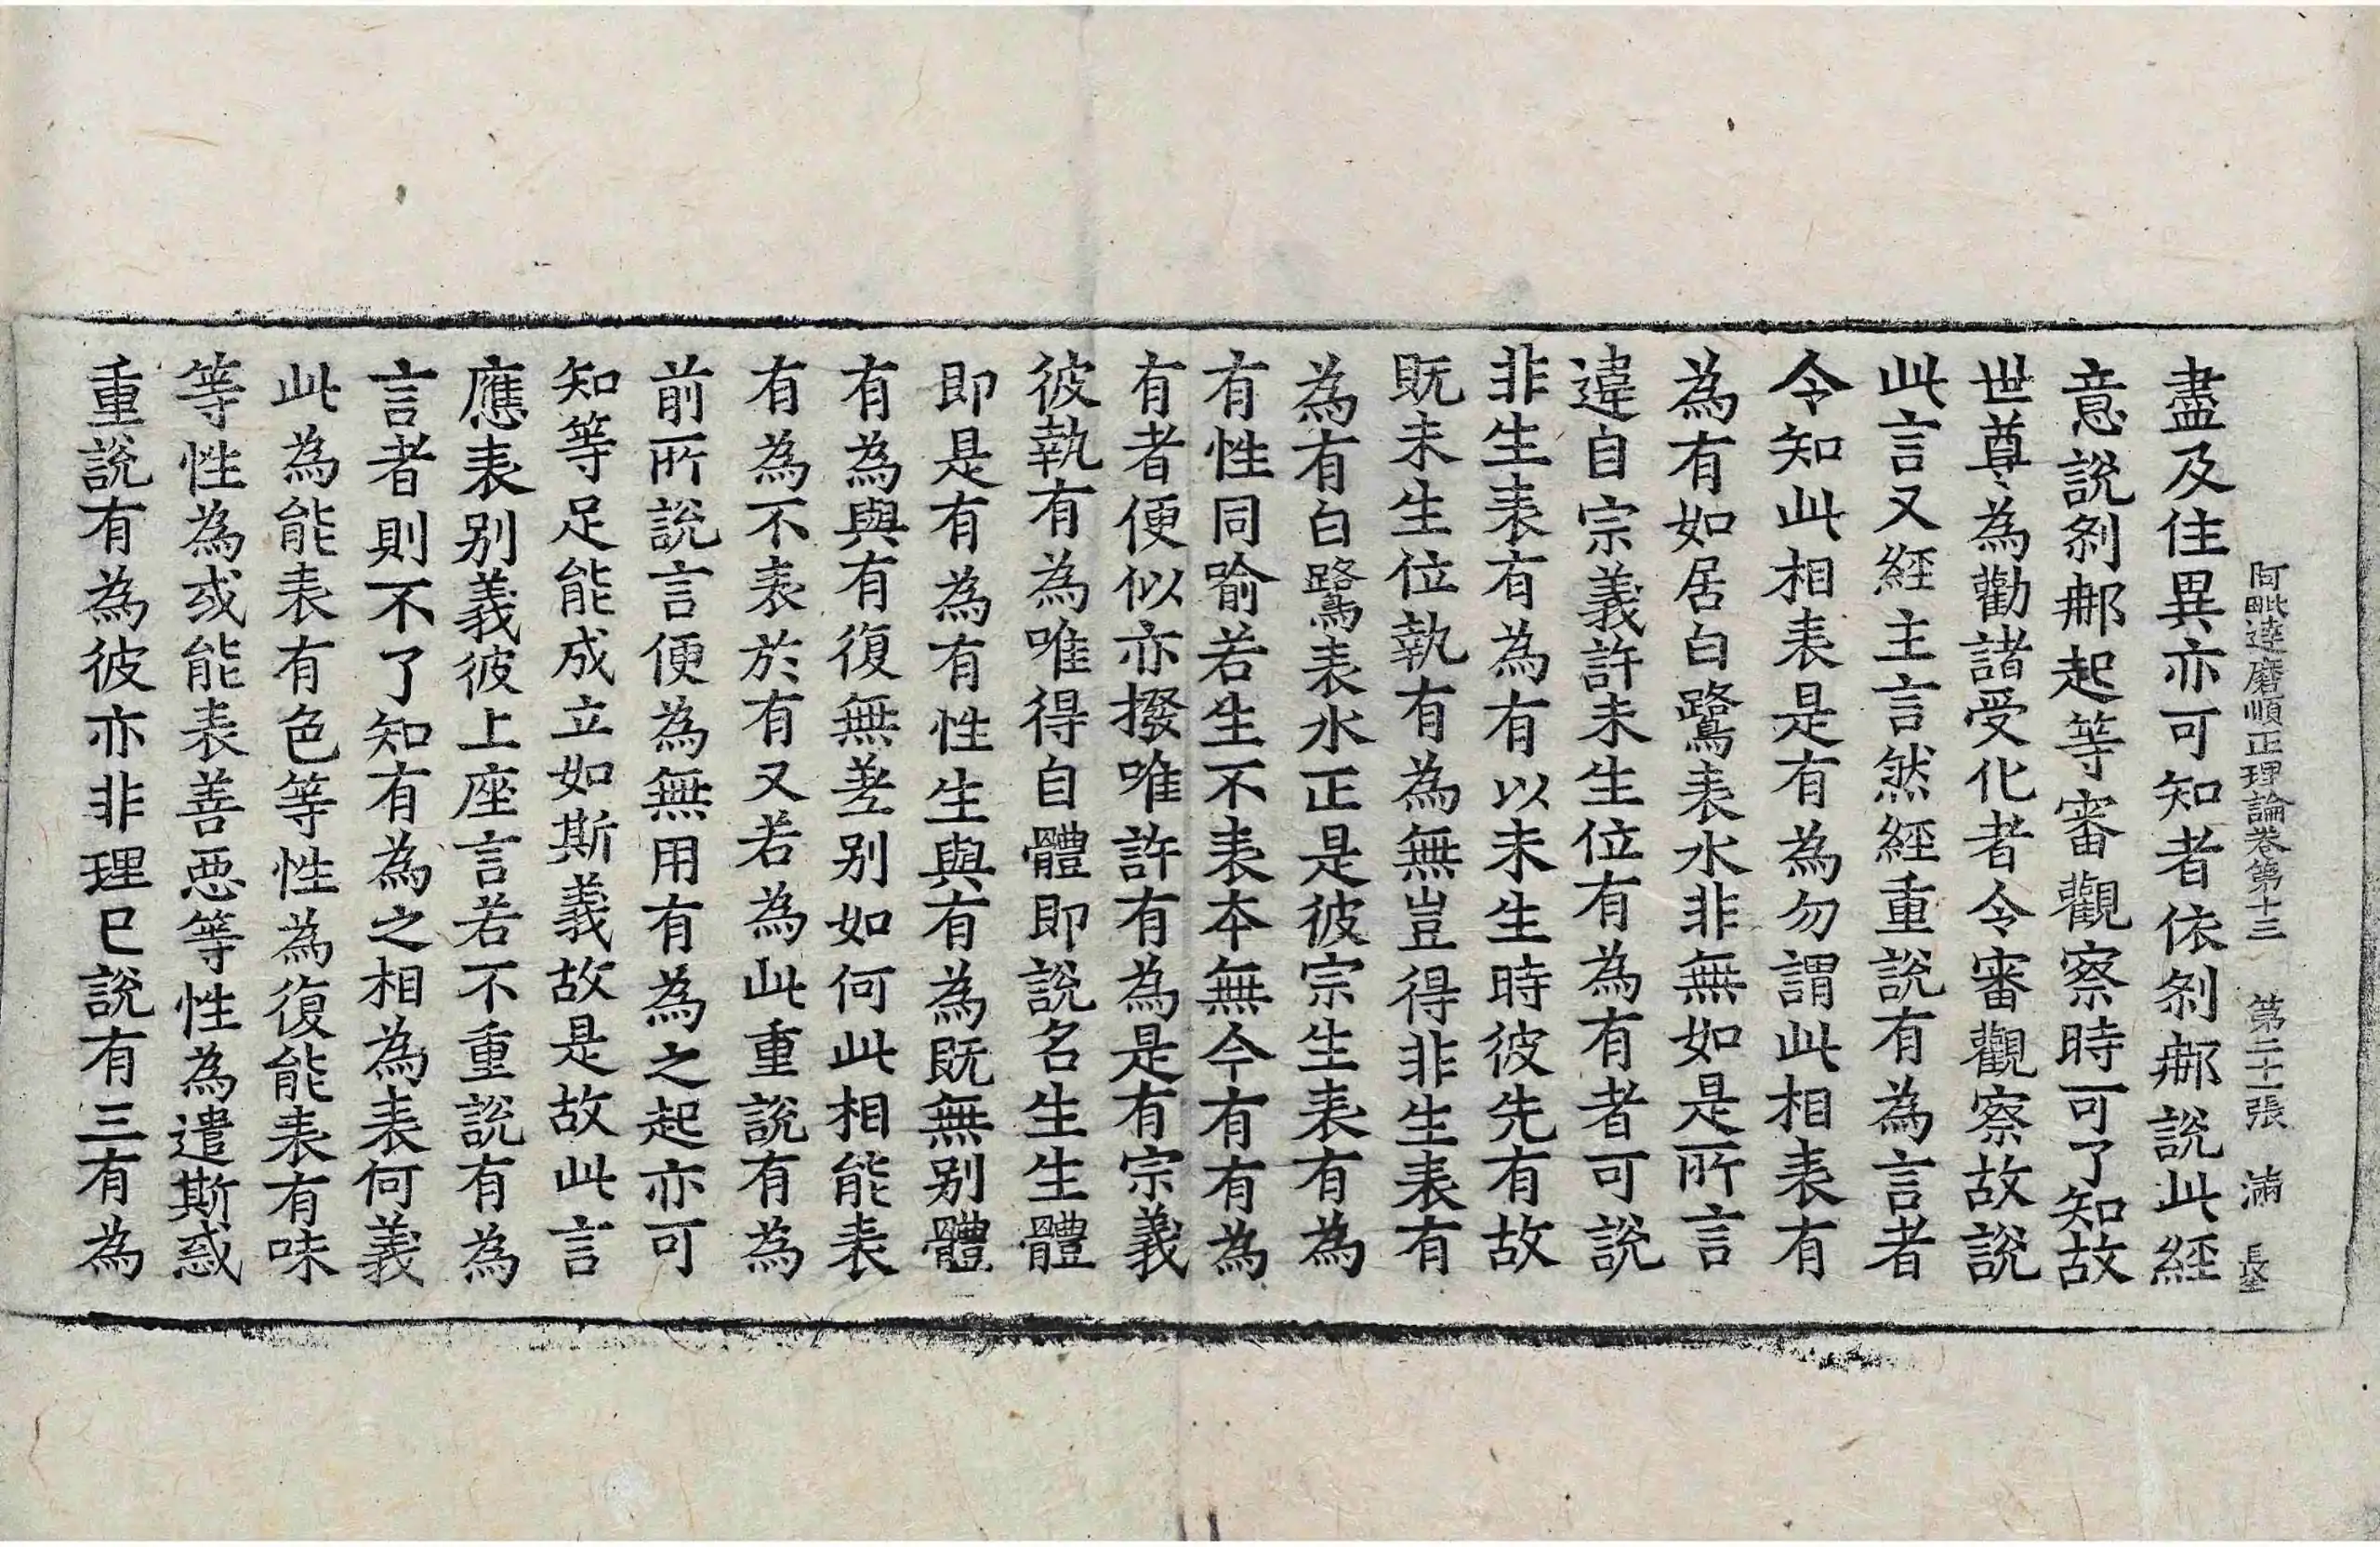 阿毗達磨順正理論卷第十三 第二十一張 滿 長
盡及住異亦可知者依刹那說此經
意說刹那起等審觀察時可了知故
世尊為勸諸受化者令審觀察故說
此言又經主言然經重說有為言者
令知此相表是有為勿謂此相表有
為有如居白鷺表水非無如是所言
違自宗義許未生位有為有者可說
非生表有為有以未生時彼先有故
既未生位執有為無豈得非生表有
為有白鷺表水正是彼宗生表有為
有性同喻若生不表本無今有有為
有者便似亦撥唯許有為是有宗義
彼執有為唯得自體即說名生生體
即是有為有性生與有為既無别體
有為與有復無差别如何此相能表
有為不表於有又若為此重說有為
前所說言便為無用有為之起亦可
知等足能成立如斯義故是故此言
應表别義彼上座言若不重說有為
言者則不了知有為之相為表何義
此為能表有色等性為復能表有味
等性為或能表善惡等性為遣斯惑
重說有為彼亦非理已說有三有為